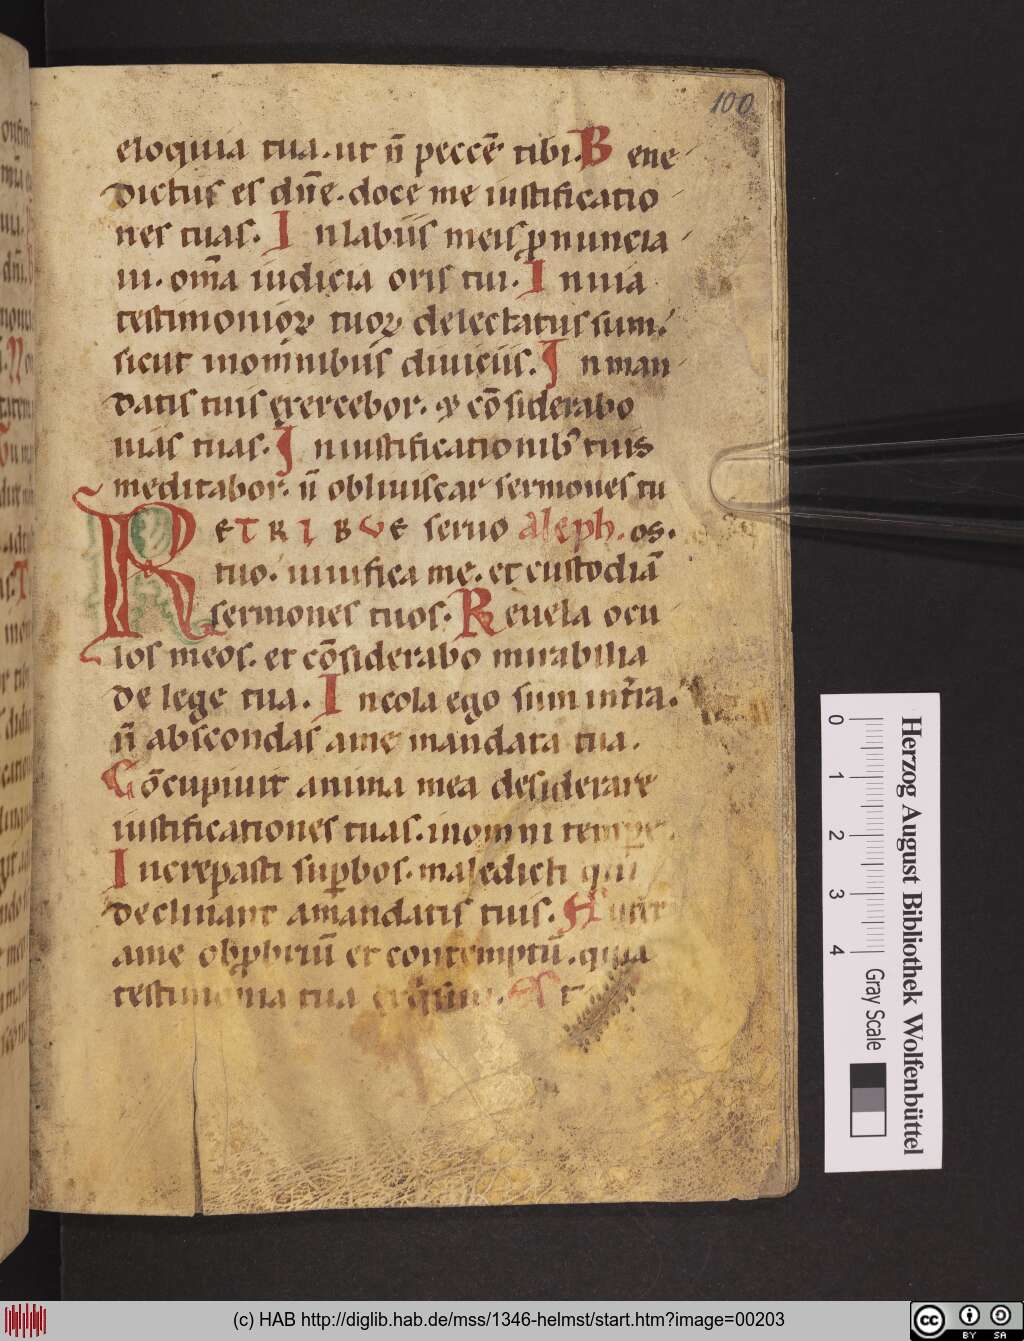 100
eloquia tua. ut n̄ peccē tibi. Bene
dictus es dn̄e. doce me iustificatio
nes tuas. In labiis meis ꝓnuncia
ui. om̄a iudicia oris tui. In uia
testimonioꝝ tuoꝝ delectatus sum.
sicut in omnibus diuiciis. In man
datis tuis exercebor. & cōsiderabo
uias tuas. In iustificationibꝰ tuis
meditabor. n̄ obliuiscar sermones tu
RETRIBVE seruo aleph. os.
tuo. uiuifica me. et custodiā
sermones tuos. Reuela ocu
los meos. et cōsiderabo mirabilia
de lege tua. Incola ego sum in tr̄a.
n̄ abscondas a me mandata tua.
Cōcupiuit anima mea desiderare
iustificationes tuas. in omni tempe.
Increpasti suꝑbos. maledicti qui
declinant a mandatis tuis. Aufer
a me obꝓbriū et contemptū. quia
testimonia tua exq̇siui. Et
Herzog August Bibliothek Wolfenbüttel
0 1 2 3 4 Gray Scale
(c) HAB http://diglib.hab.de/mss/1346-helmst/start.htm?image=00203
cc BY SA